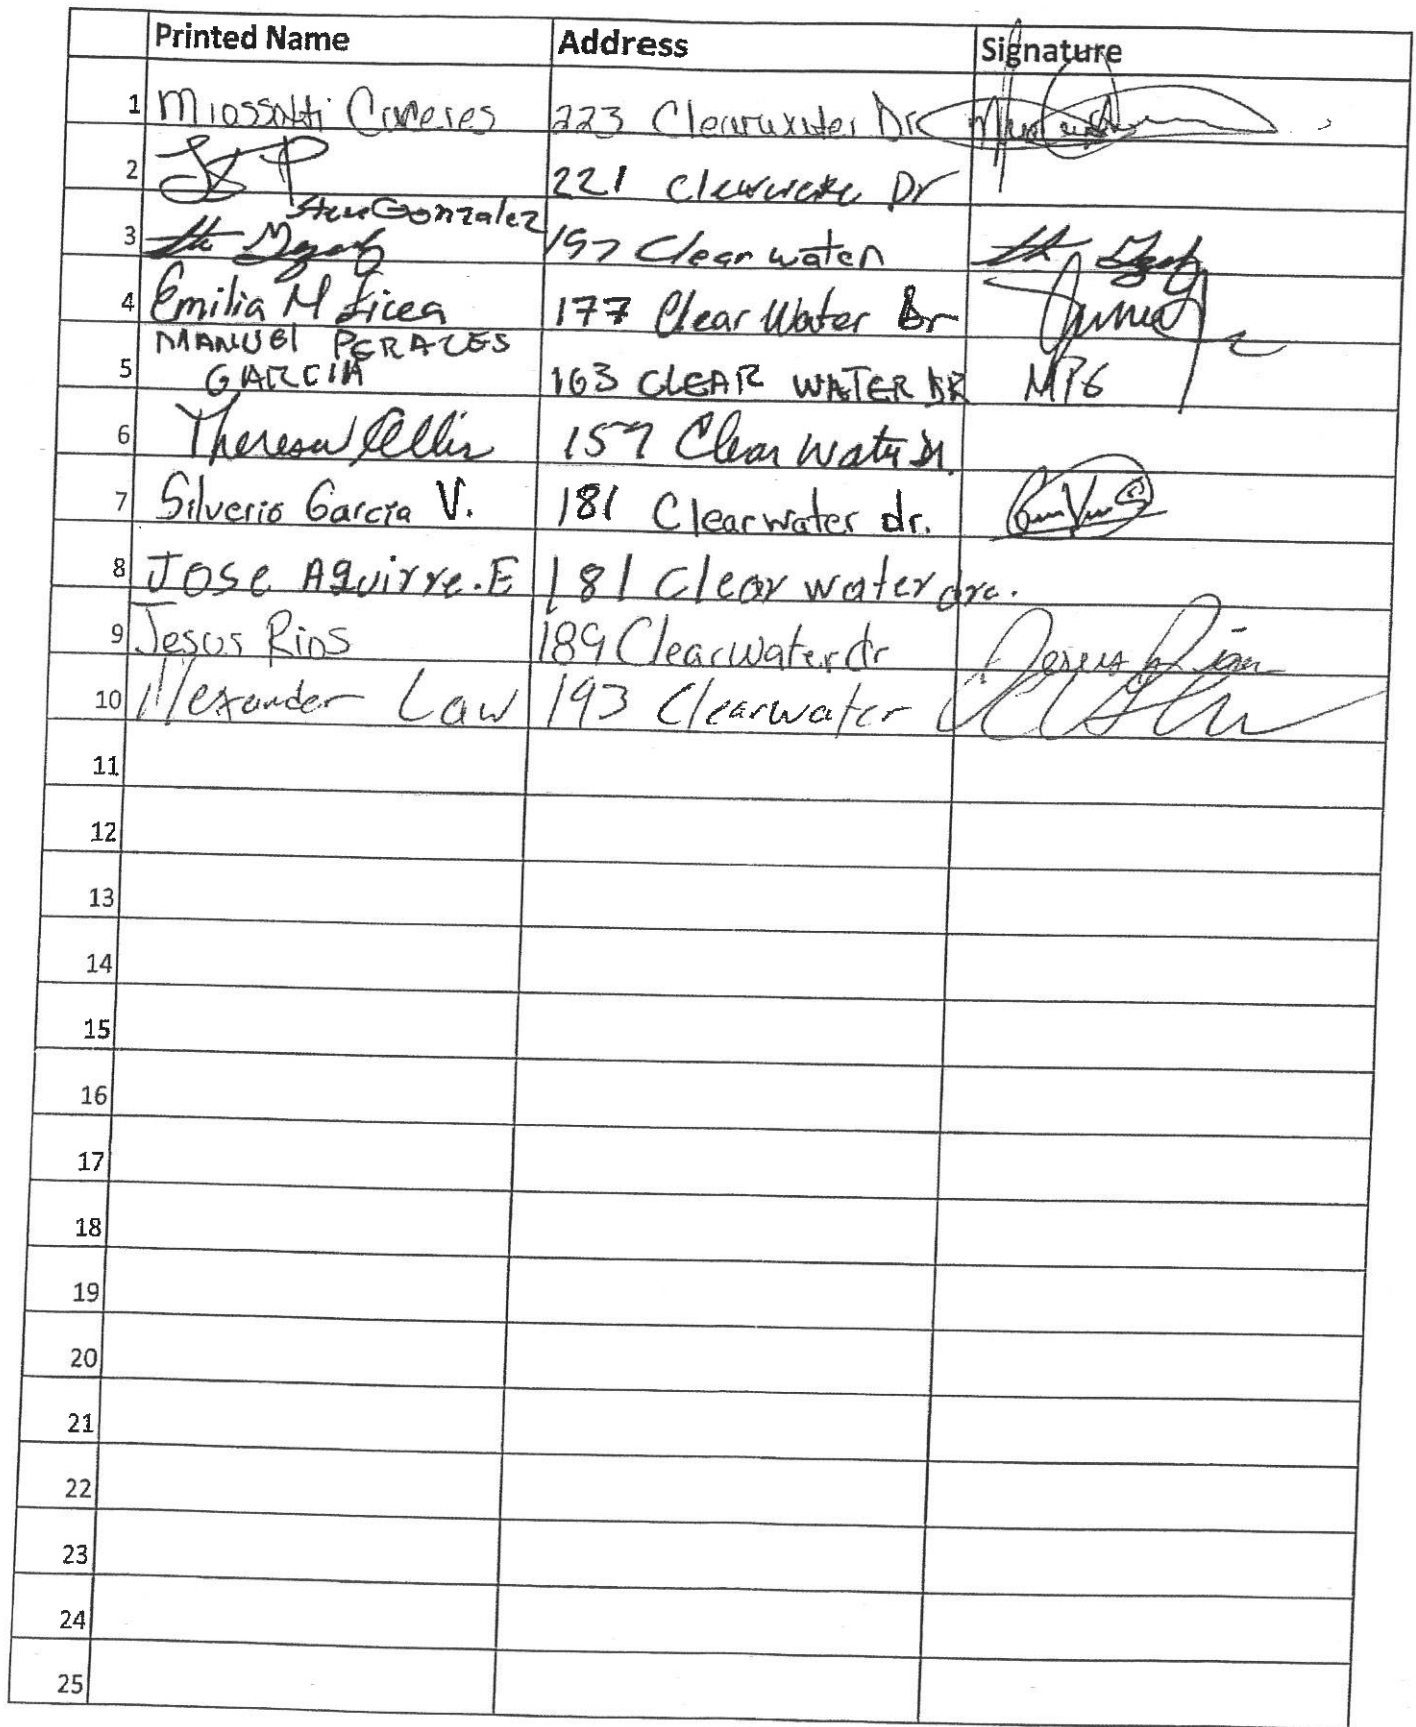 Printed Name Address Signature
1 Caceres 223 Clearwater Dr
2 221 Dr
Steve Gonzalez
3 197 Clear water
4 Emilia M Licea 177 Clear Water Dr
MANUEL PERALES
5 GARCIA 163 CLEAR WATER DR MPG
6 Theresa Ellis 157 Clear Water Dr.
7 Silverio Garcia V. 181 Clearwater dr.
8 Jose Aguirre.E 181 Clear water dre.
9 Jesus Rios 189 Clearwater dr Jesus Rios
10 Alexander Law 193 Clearwater
11
12
13
14
15
16
17
18
19
20
21
22
23
24
25